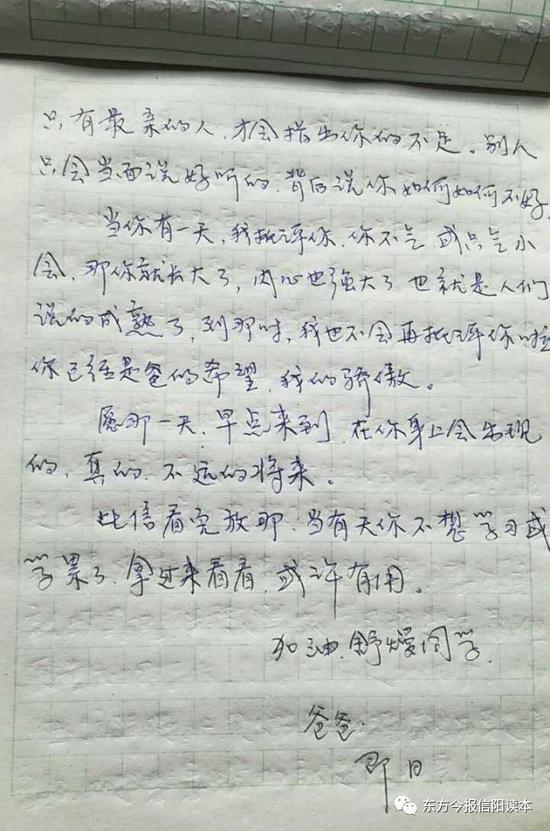 只有最亲的人,才会指出你的不足。别人
只会当面说好听的,背后说你如何如何不好
当你有一天,我批评你,你不气或只气小
会,那你就长大了,内心也强大了也就是人们
说的成熟了,到那时,我也不会再批评你啦
你已经是爸的希望,我的骄傲。
愿那一天,早点来到,在你身上会出现
的,真的,不远的将来。
此信看完放那,当有天你不想学习或
学累了,拿过来看看,或许有用。
加油,舒嫒同学,
爸爸.
即日
东方今报信阳读本